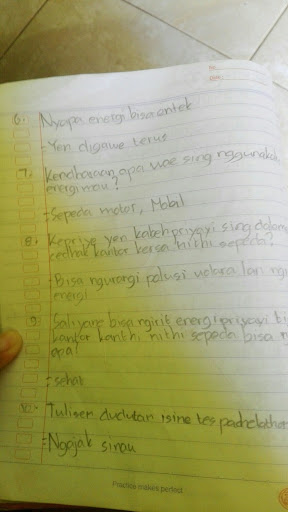 6. Nyapa energi bisa entek
- Yen digawe terus
7. Kendharaan apa wae sing nggunakake
energi mau?
- Sepeda motor, Mobil
8. Kepriye yen kabeh priyayi sing dalem
cedhak kantor kersa nithi sepeda?
- Bisa ngurangi polusi udara lan ngi
energi
9. Saliyane bisa ngirit energi priyayi bi
kantor kanthi nithi sepeda bisa n
apa?
- sehat
10. Tulisen dudutan isine teks pacelathon
- Ngajak sinau
Practice makes perfect